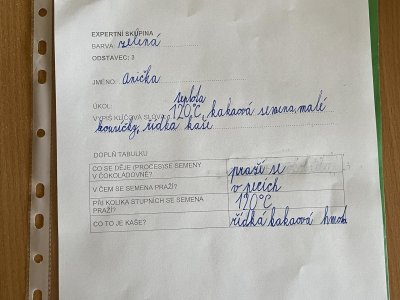 EXPERTNÍ SKUPINA
BARVA: zelená
ODSTAVEC: 3
JMÉNO: Anička
ÚKOL: teplota
VYPIŠ KLÍČOVÁ SLOVA: 120°C, kakaová semena, malé
kousíčky, řídká kaše
DOPLŇ TABULKU
CO SE DĚJE (PROCES) SE SEMENY V ČOKOLÁDOVNĚ? praží se
V ČEM SE SEMENA PRAŽÍ? v pecích
PŘI KOLIKA STUPNÍCH SE SEMENA PRAŽÍ? 120°C
CO TO JE KAŠE? řídká kakaová hmota